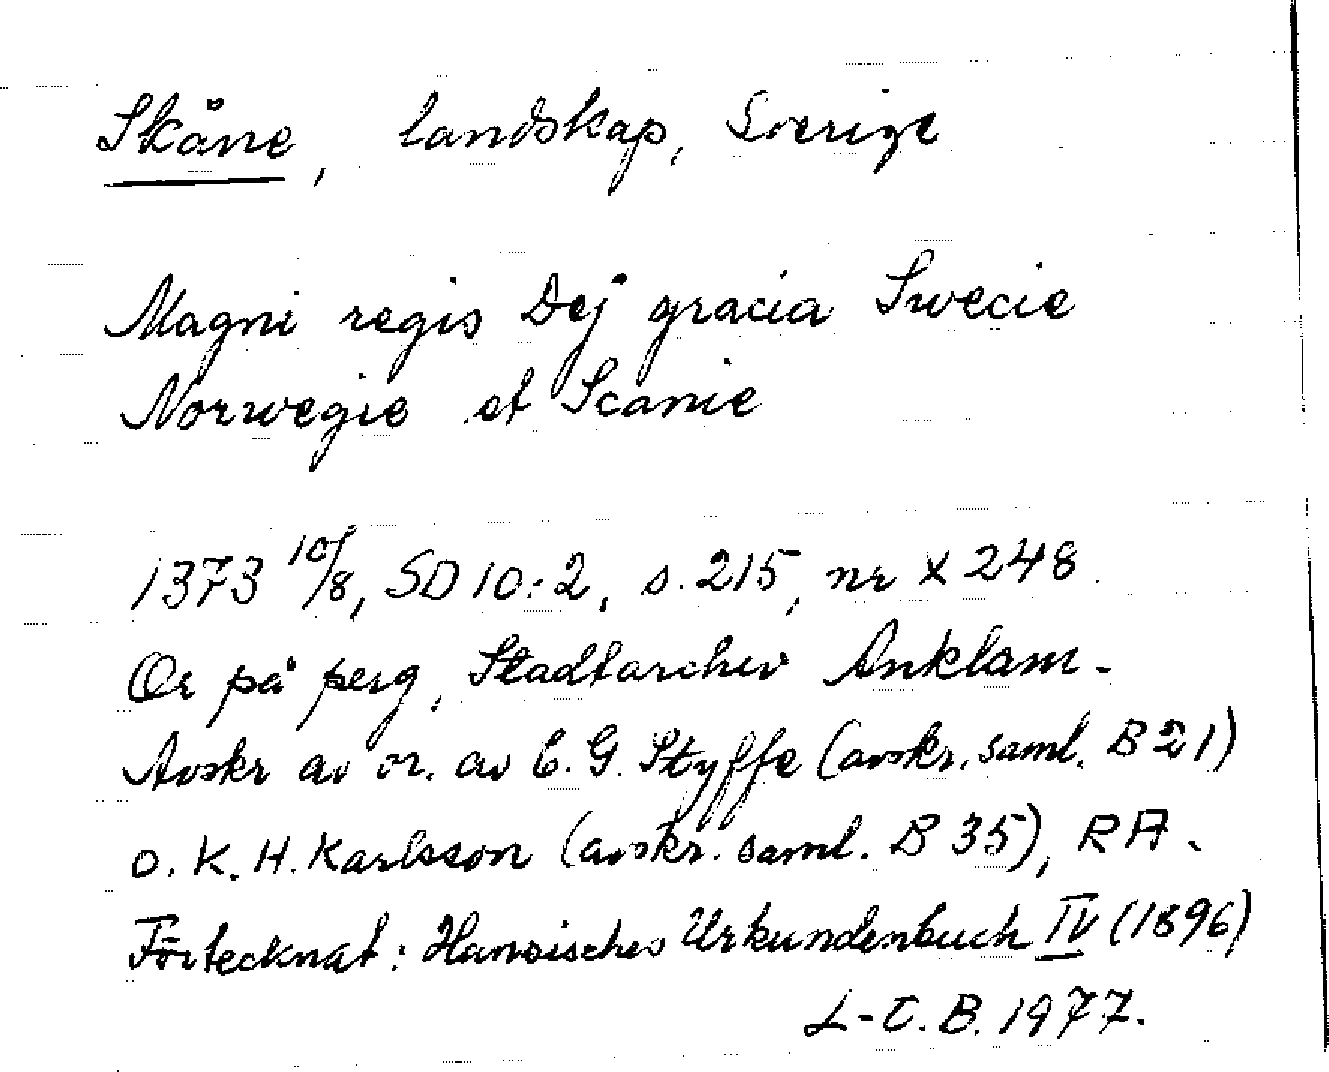 Skåne, landskap, Sverige
Magni regis Dej gracia Swecie
Norwegie et Scanie
1373 10/8, SD 10:2, s. 215, nr X 248.
Or på perg, Stadtarchiv Anklam.
Avskr av or. av C. G. Styffe (avskr. saml. B 21)
o. K. H. Karlsson (avskr. saml. B 35), RA.
Förtecknat: Hansisches Urkundenbuch IV (1896)
L-C. B. 1977.